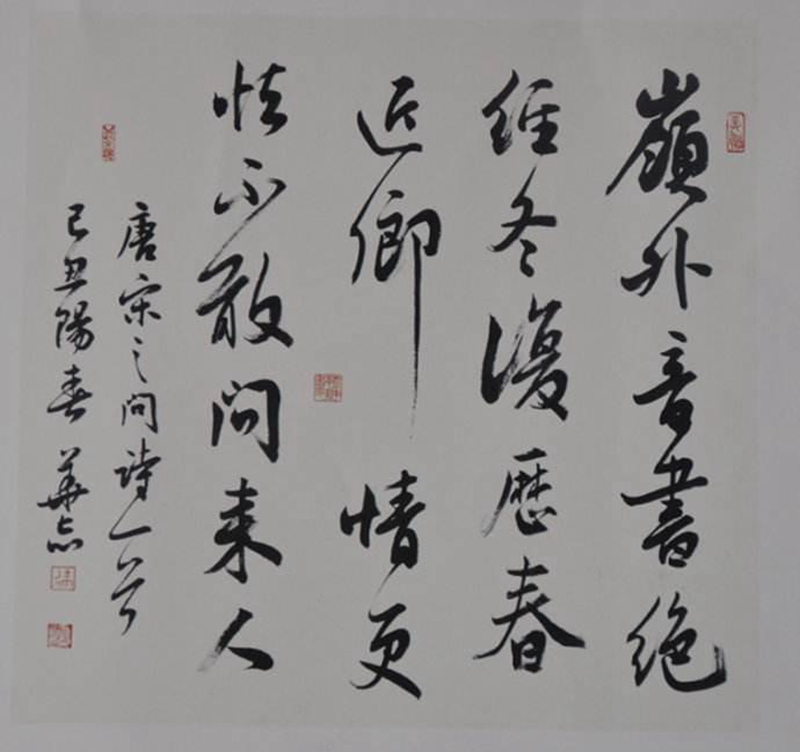 嶺外音書絶
經冬復歷春
近鄉情更
怯不敢問来人
唐宋之問詩一首
己丑陽春